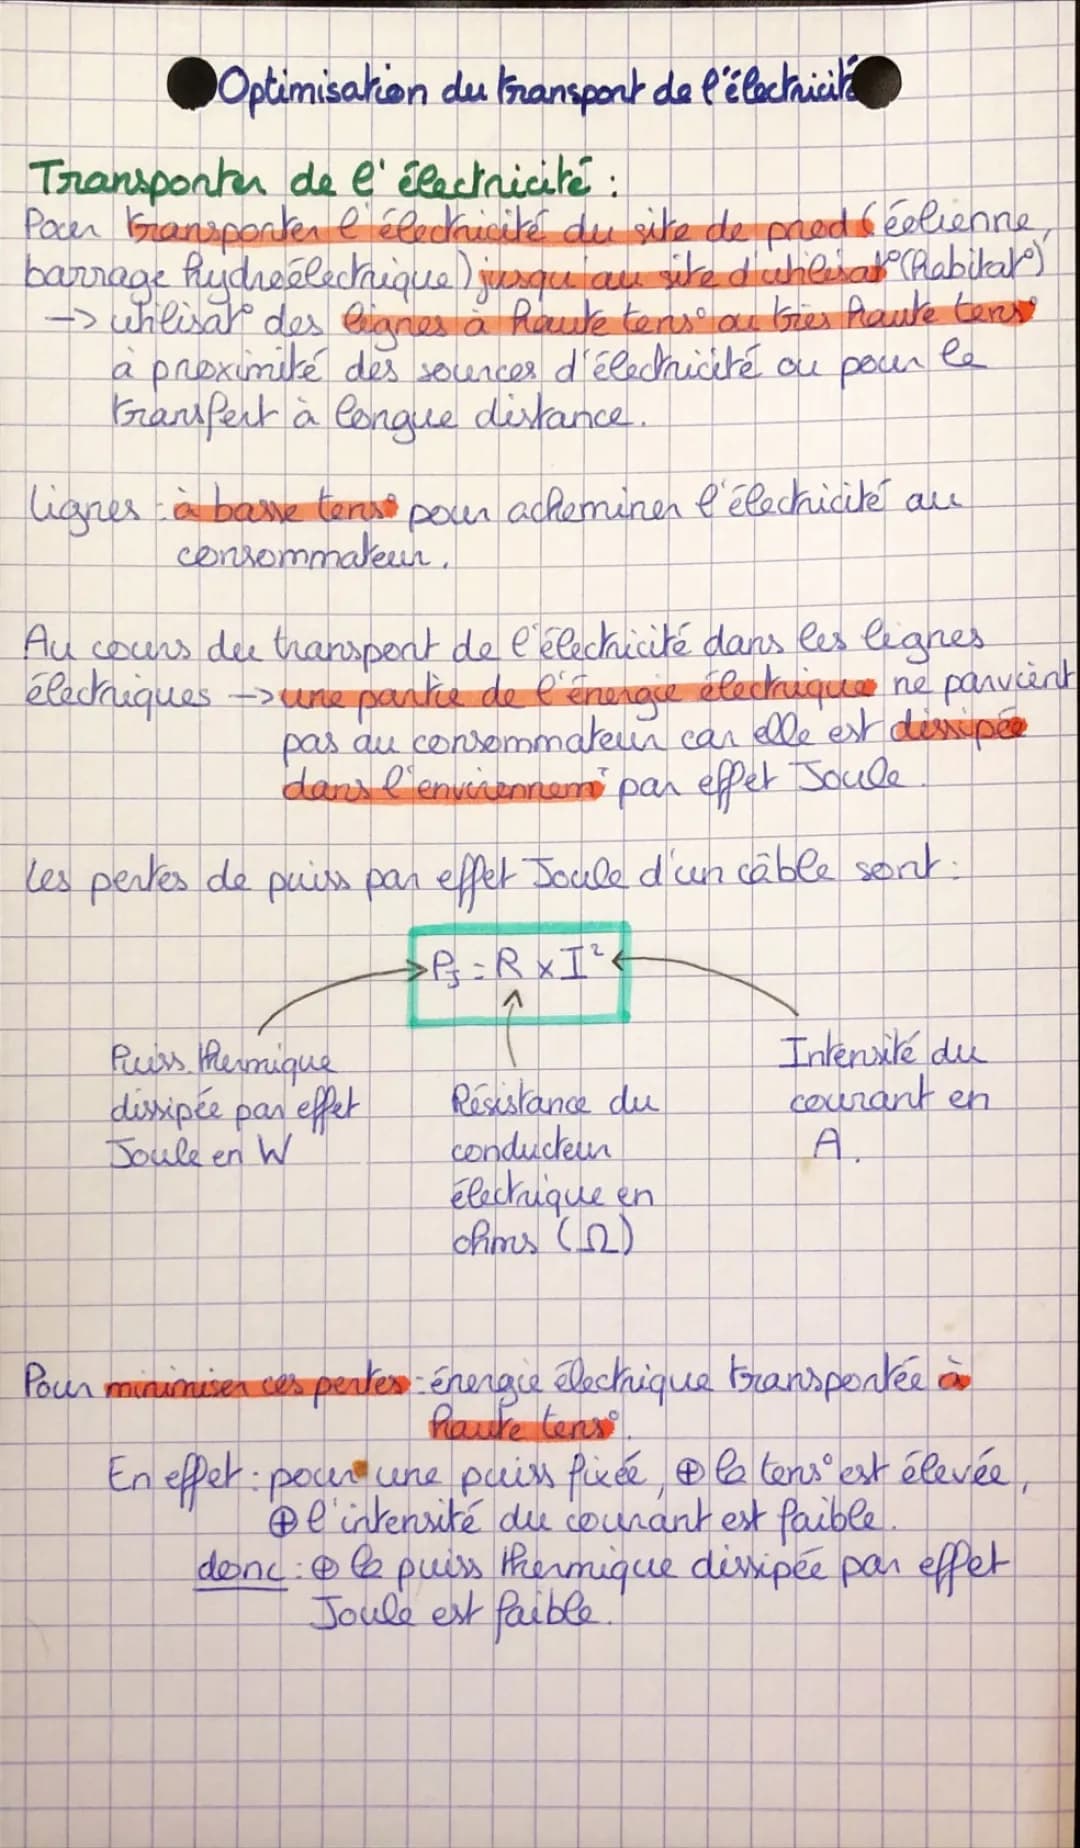 Optimisation du transport de l'électricité
Transporter de l'électricité :
Pour transporter l'électricité du site de prod (éolienne,
barrage hydroélectrique) jusqu'au site d'utilisat° (habitat°)
-> utilisat° des lignes à haute tens° ou très haute tens°
à proximité des sources d'électricité ou pour le
transfert à longue distance.
Lignes : à basse tens° pour acheminer l'électricité au
consommateur.
Au cours du transport de l'électricité dans les lignes
électriques -> une partie de l'énergie électrique ne parvient
pas au consommateur car elle est dissipée
dans l'environnemT par effet Joule.
Les pertes de puiss par effet Joule d'un câble sont :
PJ = R x I²
Puiss. thermique
dissipée par effet
Joule en W
Résistance du
conducteur
électrique en
ohms (Ω)
Intensité du
courant en
A.
Pour minimiser ces pertes : énergie électrique transportée à
haute tens°.
En effet : pour une puiss fixée, ⊕ la tens° est élevée,
⊕ l'intensité du courant est faible.
donc : ⊕ la puiss thermique dissipée par effet
Joule est faible.